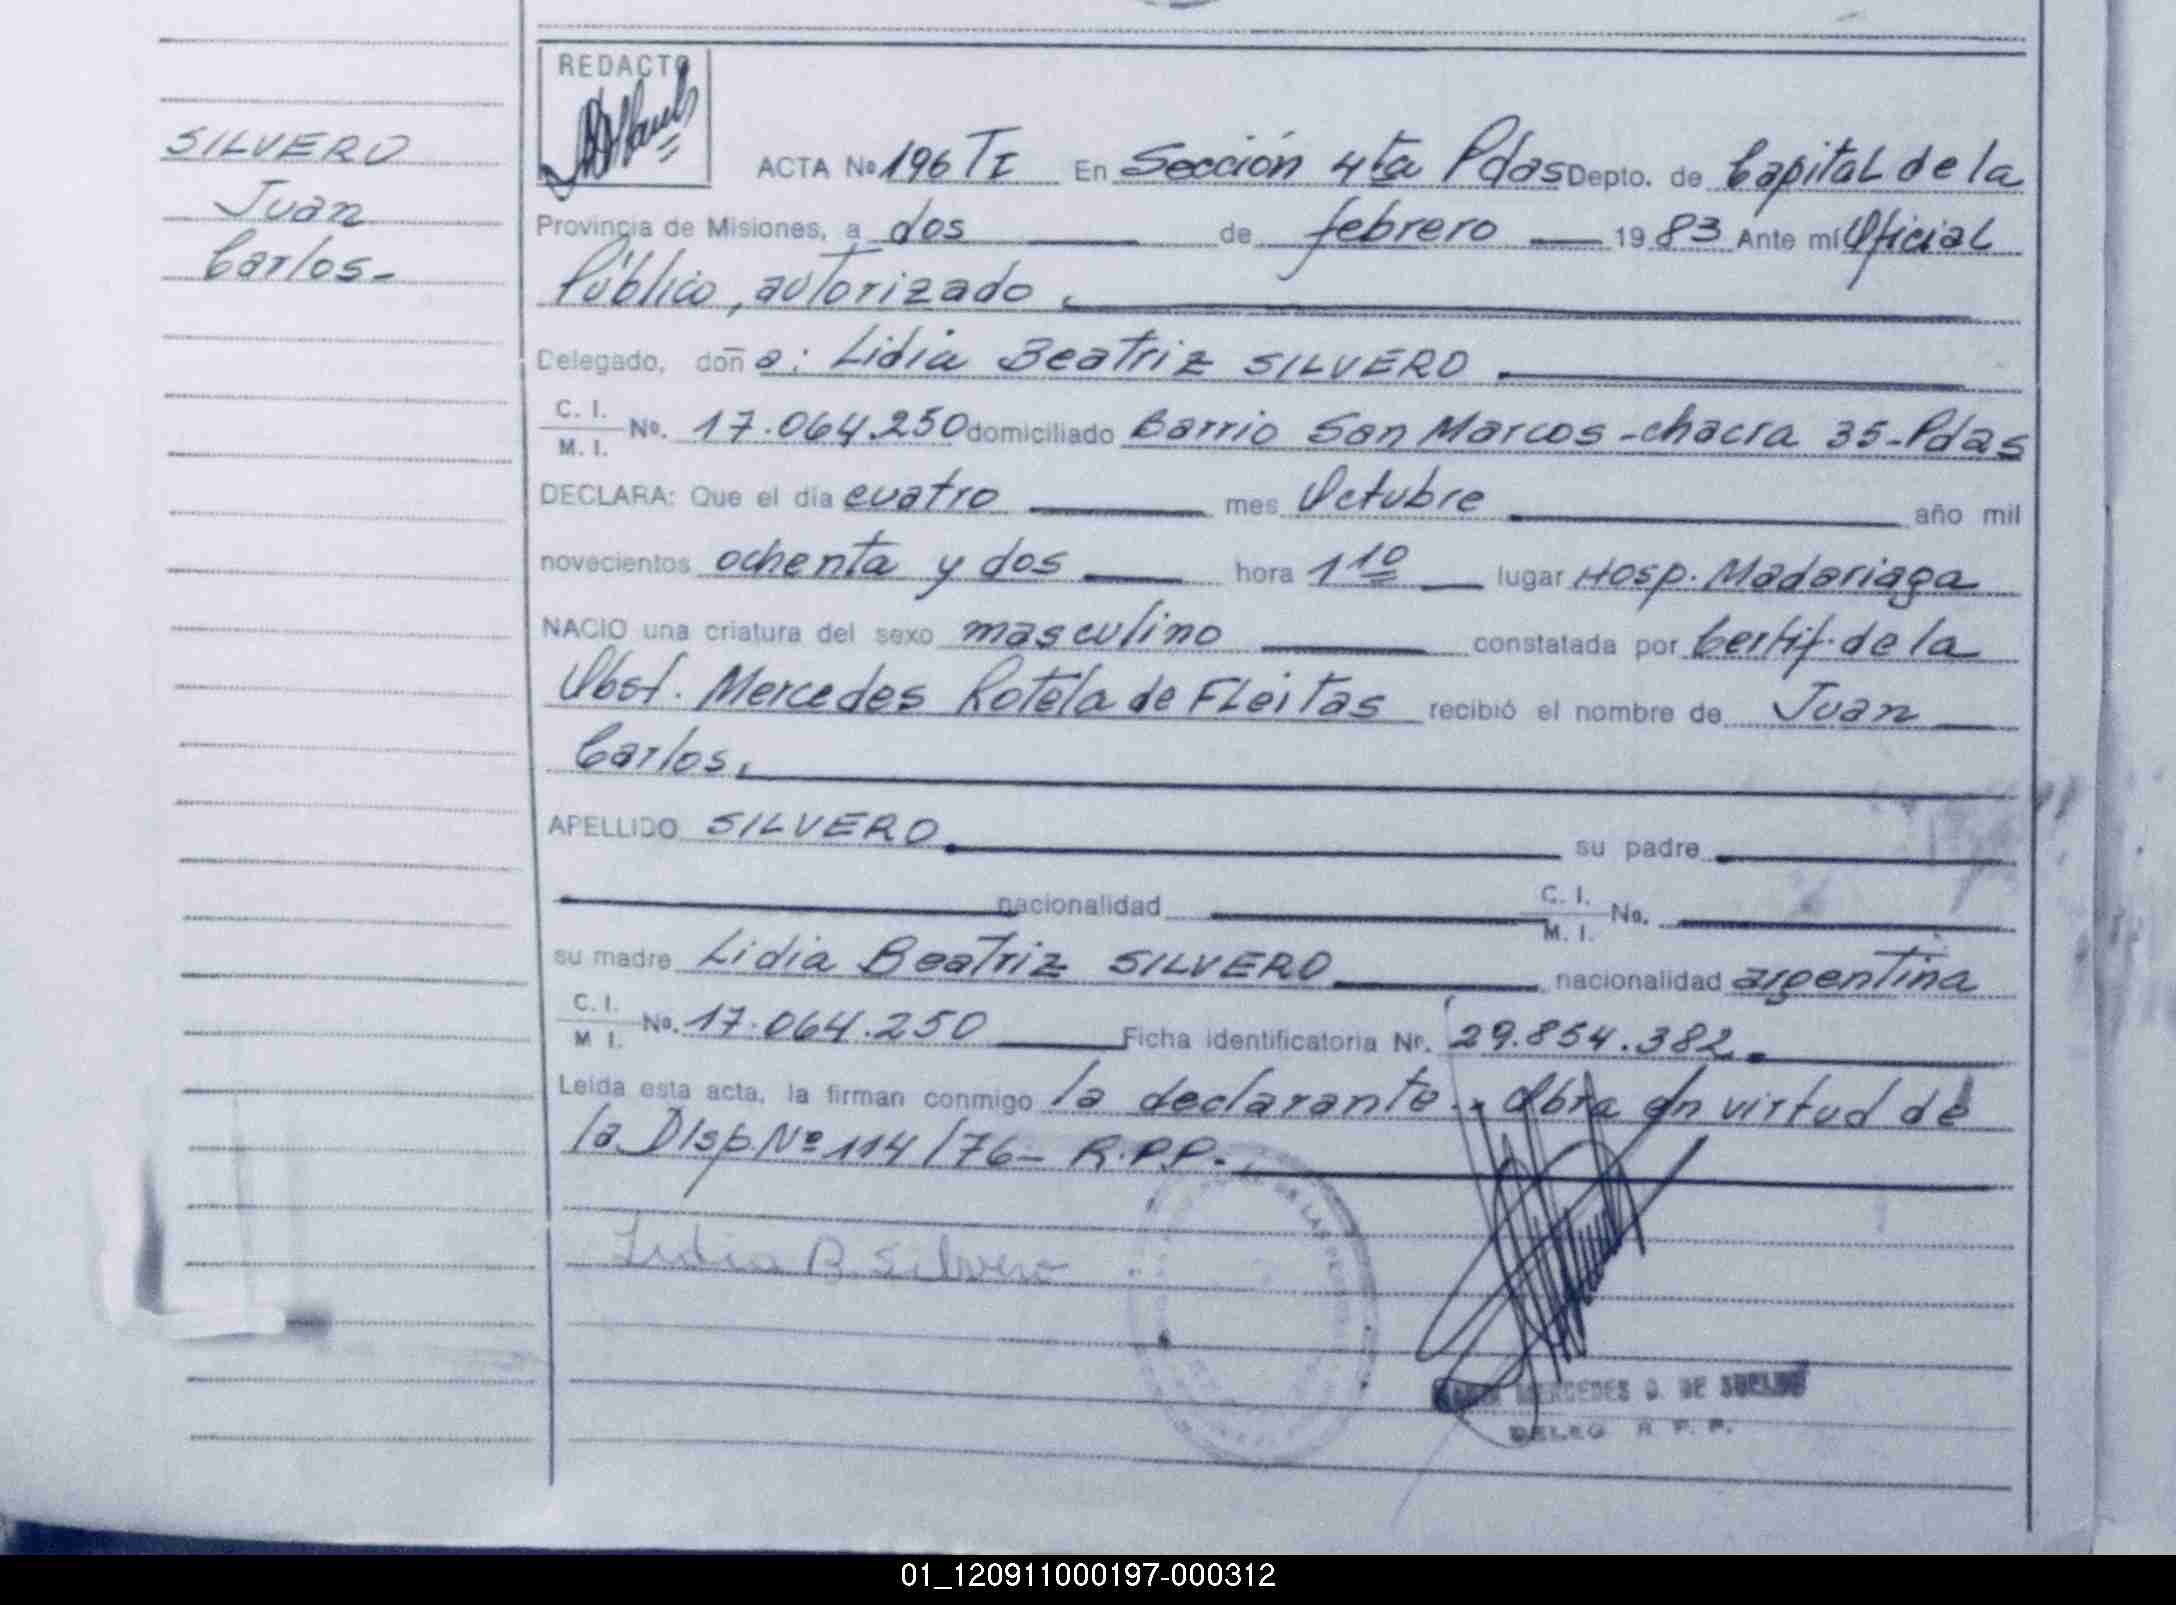 SILVERO
Juan
Carlos-
REDACTO
ACTA No 196 TI En Sección 4ta Pdas Depto. de Capital de la
Provincia de Misiones, a dos de febrero 1983 Ante mí Oficial
Público, autorizado.
Delegado, doña: Lidia Beatriz SILVERO
C. I.
M. I. No. 17.064.250 domiciliado Barrio San Marcos - chacra 35 - Pdas
DECLARA: Que el día cuatro mes Octubre año mil
novecientos ochenta y dos hora 1 10 lugar Hosp. Madariaga
NACIO una criatura del sexo masculino constatada por Certif. de la
Obst. Mercedes Rotela de FLeitas recibió el nombre de Juan
Carlos.
APELLIDO SILVERO su padre
nacionalidad C. I.
M. I. No.
su madre Lidia Beatriz SILVERO nacionalidad argentina
C. I.
M I. No. 17.064.250 Ficha identificatoria Nr. 29.854.382.
Leída esta acta, la firman conmigo la declarante.- Obra en virtud de
la Disp. Nº 114/76- R.P.P.-
Lidia B. Silvero
MERCEDES D. DE
DELEG R. P. P.
01_120911000197-000312